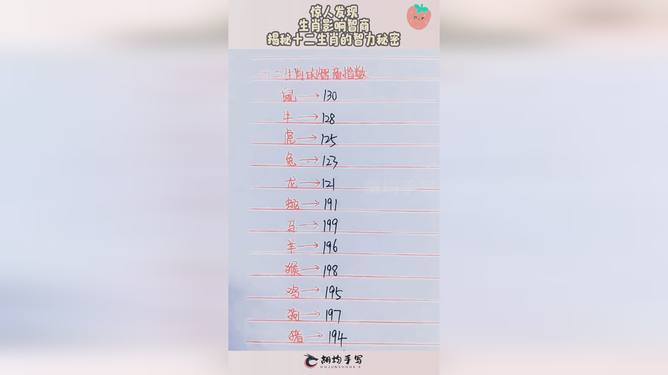 惊人发现
生肖影响智商
揭秘十二生肖的智力秘密
鼠→130
牛→128
虎→125
兔→123
龙→121
蛇→191
马→199
羊→196
猴→198
鸡→195
狗→197
猪→194
手写